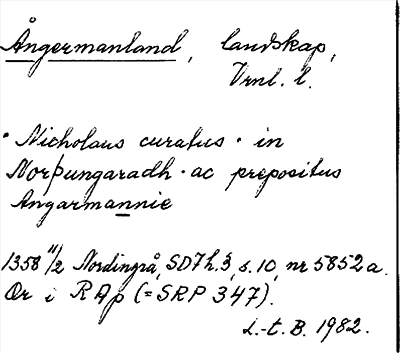 Ångermanland, landskap,
Vrnl. l.
· Nicholaus curatus · in
Norþungaradh · ac prepositus
Angarmannie
1358 11/2 Nordingrå, SD7h.3, s. 10, nr 5852a.
Or i RAp (= SRP 347).
L.-t. B. 1982.